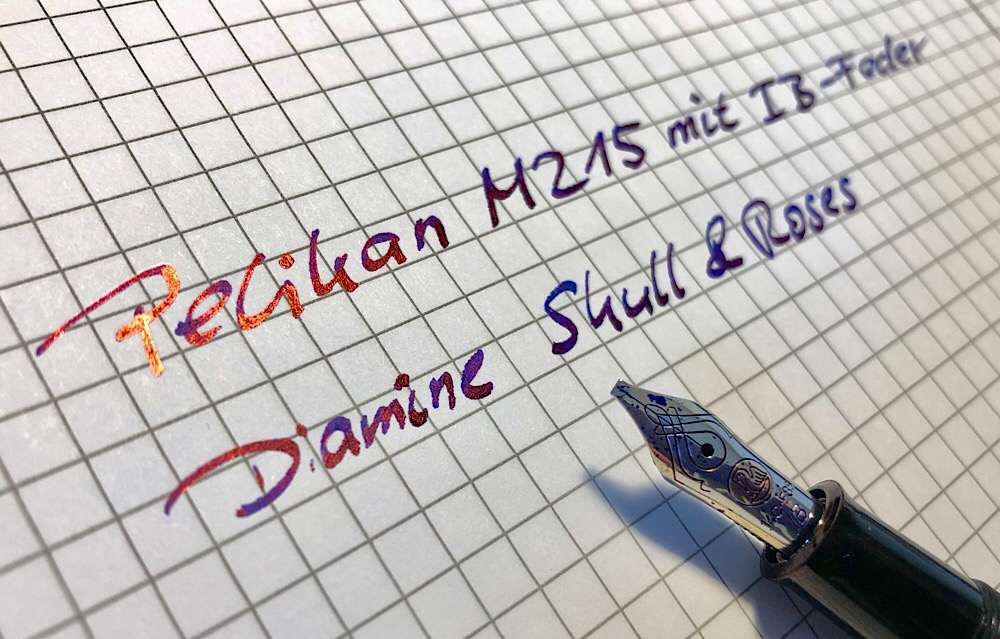 Pelikan M215 mit IB-Feder
Diamine Skull & Roses